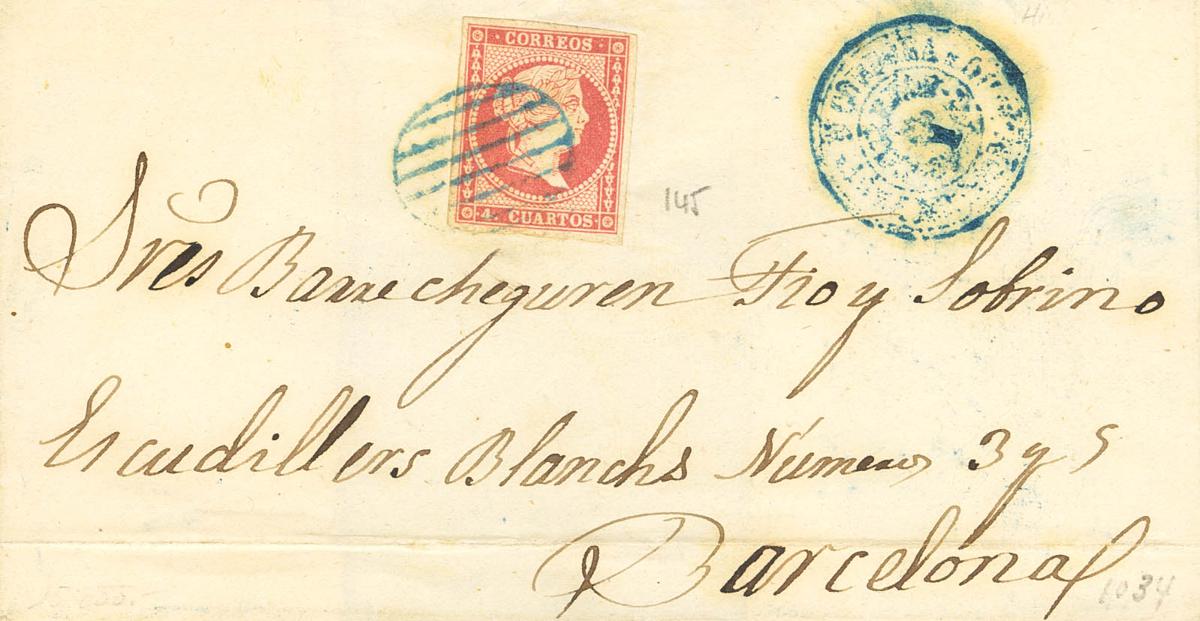 CORREOS
4 CUARTOS
145
Sres Barrecheguren Tio y Sobrino
Escudillers Blanchs Números 3 y 5
Barcelona
1034